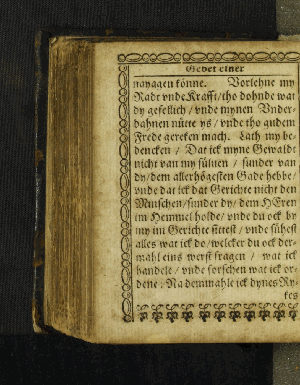 Gebet einer
nayagen könne. Vorlehne my
Radt vnde Krafft/tho dohnde wat
dy gefellich / vnde mynen Vnder-
dahnen nütte ys / vnde tho gudem
Frede gereken mach. Lath my be-
dencken / Dat ick myne Gewaldt
nicht van my sülven / sunder van
dy/dem allerhögesten Gade hebbe/
vnde dat ick dat Gerichte nicht den
Minschen/sunder dy dem HEren
im Hemmel holde/ vnde du ock by
my im Gerichte sittest / vnde sühest
alles wat ick do/welcker du ock der-
mahl eins werst fragen / wat ick
handele / vnde forschen wat ick or-
dene: Nademmahle ick dynes Ry-
kes